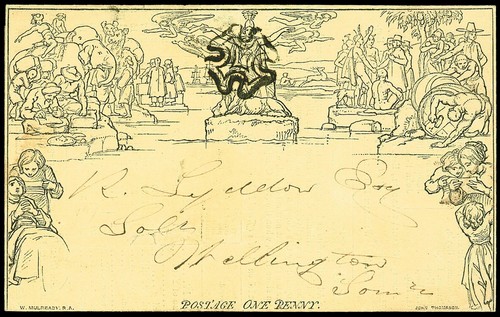 R. Lyddon Esq
Solr
Wellington
Somr
POSTAGE ONE PENNY.
W. MULREADY. R.A.
JOHN THOMPSON